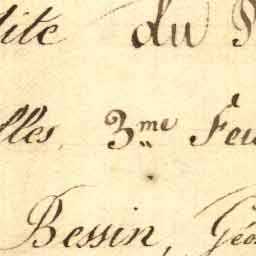 dite du
lles, 3me Feu
Bessin, Géo